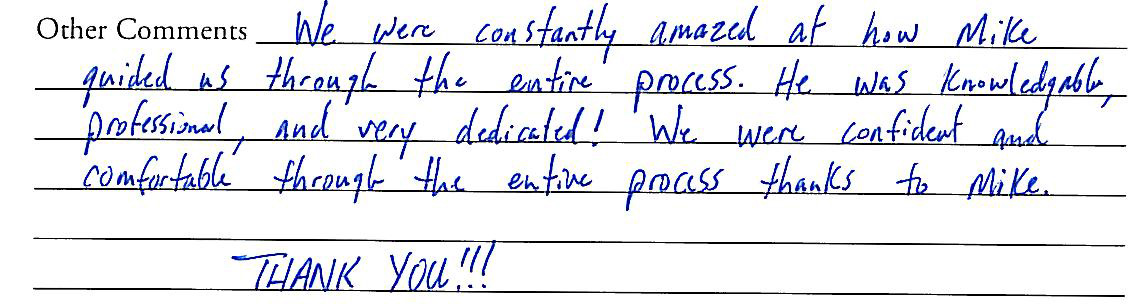 Other Comments We were constantly amazed at how Mike
guided us through the entire process. He was knowledgable,
professional, and very dedicated! We were confident and
comfortable through the entire process thanks to Mike.
THANK YOU!!!